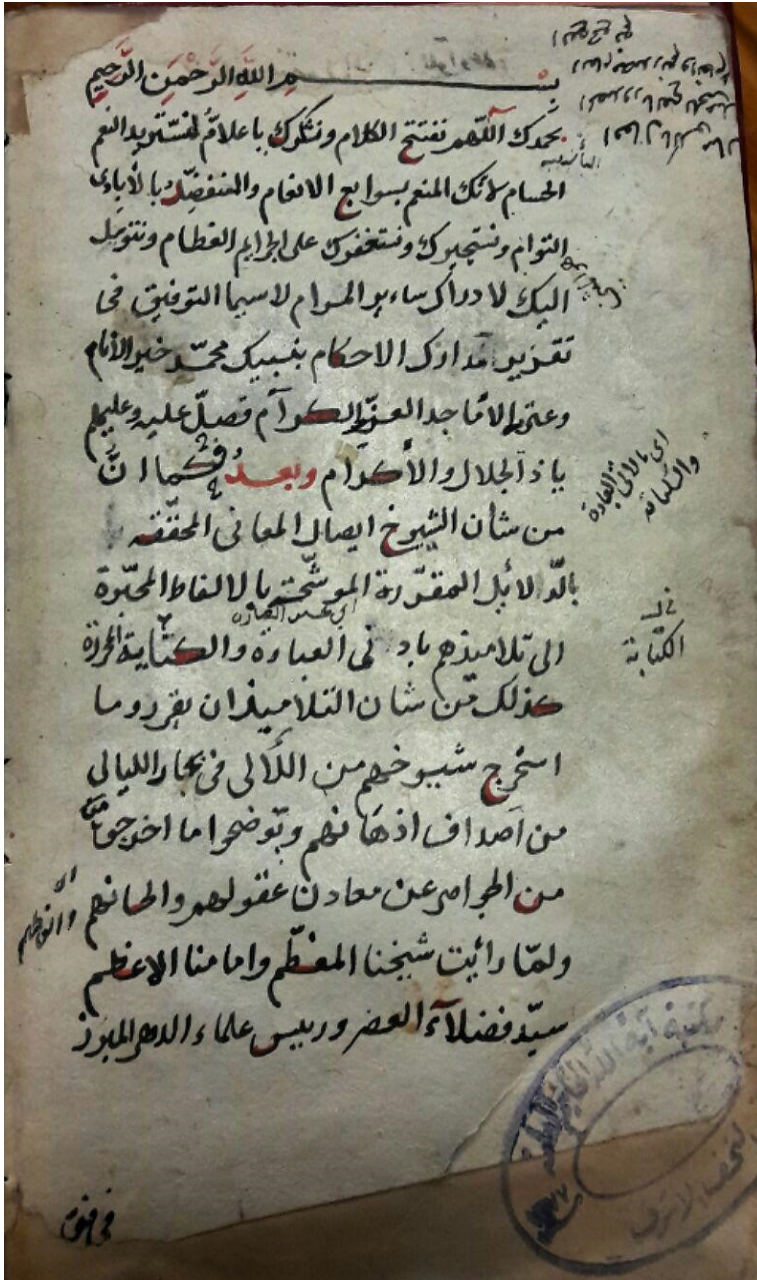 بسم الله الرحمن الرحيم
بحمدك اللهم نفتتح الكلام ونشكرك يا علام لنستزيد النعم
الحسام لانك المنعم بسوابع الانعام والمتفضل بالاٰيادى
التوام ونستجيرك ونستغفرك على الجرايم العظام ونتوسل
اليك لادراك ساير المرام لاسيما التوفيق فى
تقرير مدارك الاحكام بنبيك محمد خير الانام
وعترته الاماجد العز الكرام فصل عليه وعليهم
ياذا الجلال والاكرام وبعد فكما ان
من شان الشيوخ ايصال المعانى المحققه
بالدلائل المقررة الموشحة بالالفاظ المحبرة
الى تلاميذهم بادنى العبارة والكتابة المحررة
كذلك من شان التلاميذ ان يقرروا ما
استخرج شيوخهم من اللآلى فى بحار الليالى
من اصداف اذهانهم ويوضحوا ما اخرجوا
من الجواهر عن معادن عقولهم والهانهم
ولما رائيت شيخنا المعظم وامامنا الاعظم
سيد فضلآء العصر ورييس علماء الدهر المبرز
اى بالاتى العادة
فى
الكتابة
مكتبة آية الله
النجف الاشرف